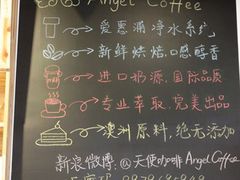 Angel Coffee
爱惠浦净水系统
新鲜烘焙,口感醇香
进口奶源,国际品质
专业萃取,完美出品
澳洲原料,绝无添加
新浪微博:@天使咖啡Angel Coffee